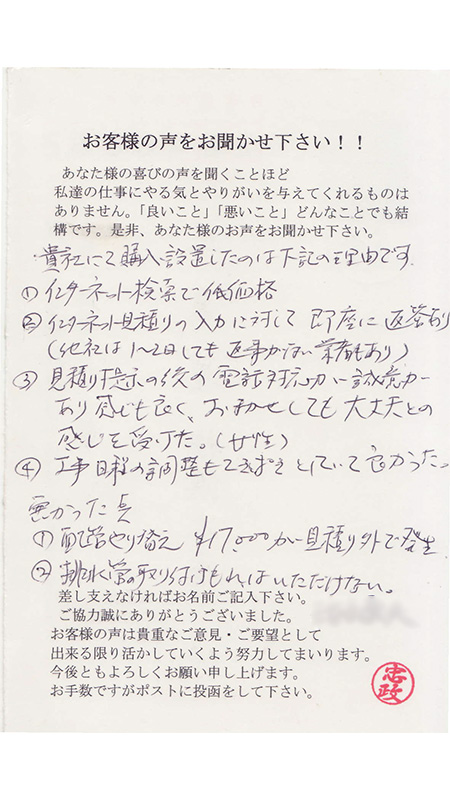 お客様の声をお聞かせ下さい！！
あなた様の喜びの声を聞くことほど
私達の仕事にやる気とやりがいを与えてくれるものは
ありません。「良いこと」「悪いこと」どんなことでも結
構です。是非、あなた様のお声をお聞かせ下さい。
貴社にて購入設置したのは下記の理由です
① インターネット検索で低価格
② インターネット見積りの入力に対して 即座に返答あり
(他社は1〜2日しても返事がない業者もあり)
③ 見積り提示の後の電話対応が誠意が
あり感じも良く、おまかせしても大丈夫との
感じを受けた。(女性)
④ 工事日程の調整もてきぱきとしていて良かった。
悪かった点
① 配管やり替え ¥17,000が見積り外で発生
② 排水管の取り付けもれはいただけない。
差し支えなければお名前ご記入下さい。
ご協力誠にありがとうございました。
お客様の声は貴重なご意見・ご要望として
出来る限り活かしていくよう努力してまいります。
今後ともよろしくお願い申し上げます。
お手数ですがポストに投函をして下さい。
忠政